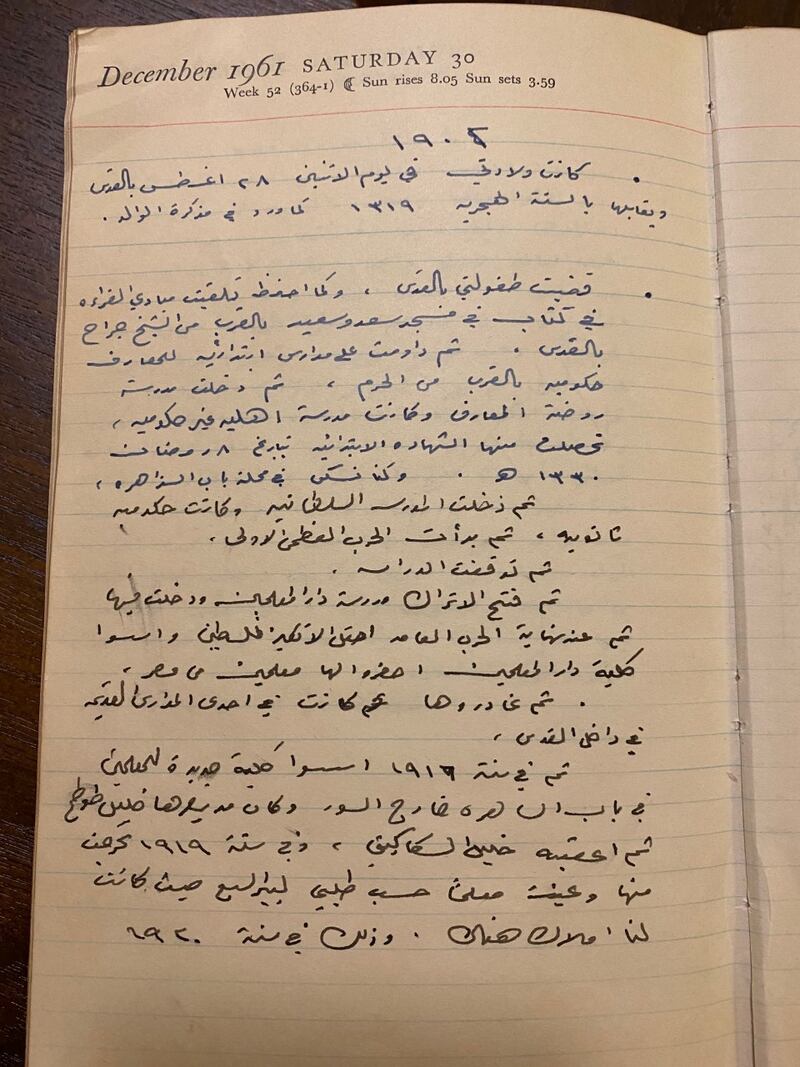 December 1961 SATURDAY 30
Week 52 (364-1) ☾ Sun rises 8.05 Sun sets 3.59
١٩٠٢
• كانت ولادتي في ليوم الاثنين ٢٨ اغسطس بالقدس
ويقابلها بالسنة الهجريه ١٣١٩ كما ورد في مذكرة الوالد .
• قضيت طفولتي بالقدس ، وكما احفظ تلقيت مبادئ القراءه
في كتاب في مسجد سعد وسعيد بالقرب من الشيخ جراح
بالقدس . ثم داومت على مدارس ابتدائيه للمعارف
حكوميه بالقرب من الحرم ، ثم دخلت مدرسة
روضة المعارف وكانت مدرسة اهليه غير حكوميه ،
تحصلت منها الشهاده الابتدائيه بتاريخ ٨ رمضان
١٣٣٠ هـ . وكنا نسكن في محلة باب الزاهره ،
ثم دخلت المدرسه السلطانيه وكانت حكوميه
ثانويه ، ثم بدأت الحرب العظمى الاولى .
ثم توقفت الدراسه .
ثم فتح الاتراك مدرسة دار المعلمين ودخلت فيها
ثم عند نهاية الحرب احتل الانكليز فلسطين واسسوا
كلية دار المعلمين احضروا لها معلمين من مصر ،
. ثم غادروها كانت في احدى المدارس القديمه
في داخل القدس ،
ثم في سنة اسسوا كلية جديدة للمعلمين
في باب الساهره خارج السور وكان مديرها خليل طوطح
ثم اعقبه خليل السكاكيني ، وفي سنة ١٩١٩ تخرجت
منها وعينت معلما حسب طلبي لبئر السبع حيث كانت
لنا املاك هناك . وذلك في سنة ١٩٢٠